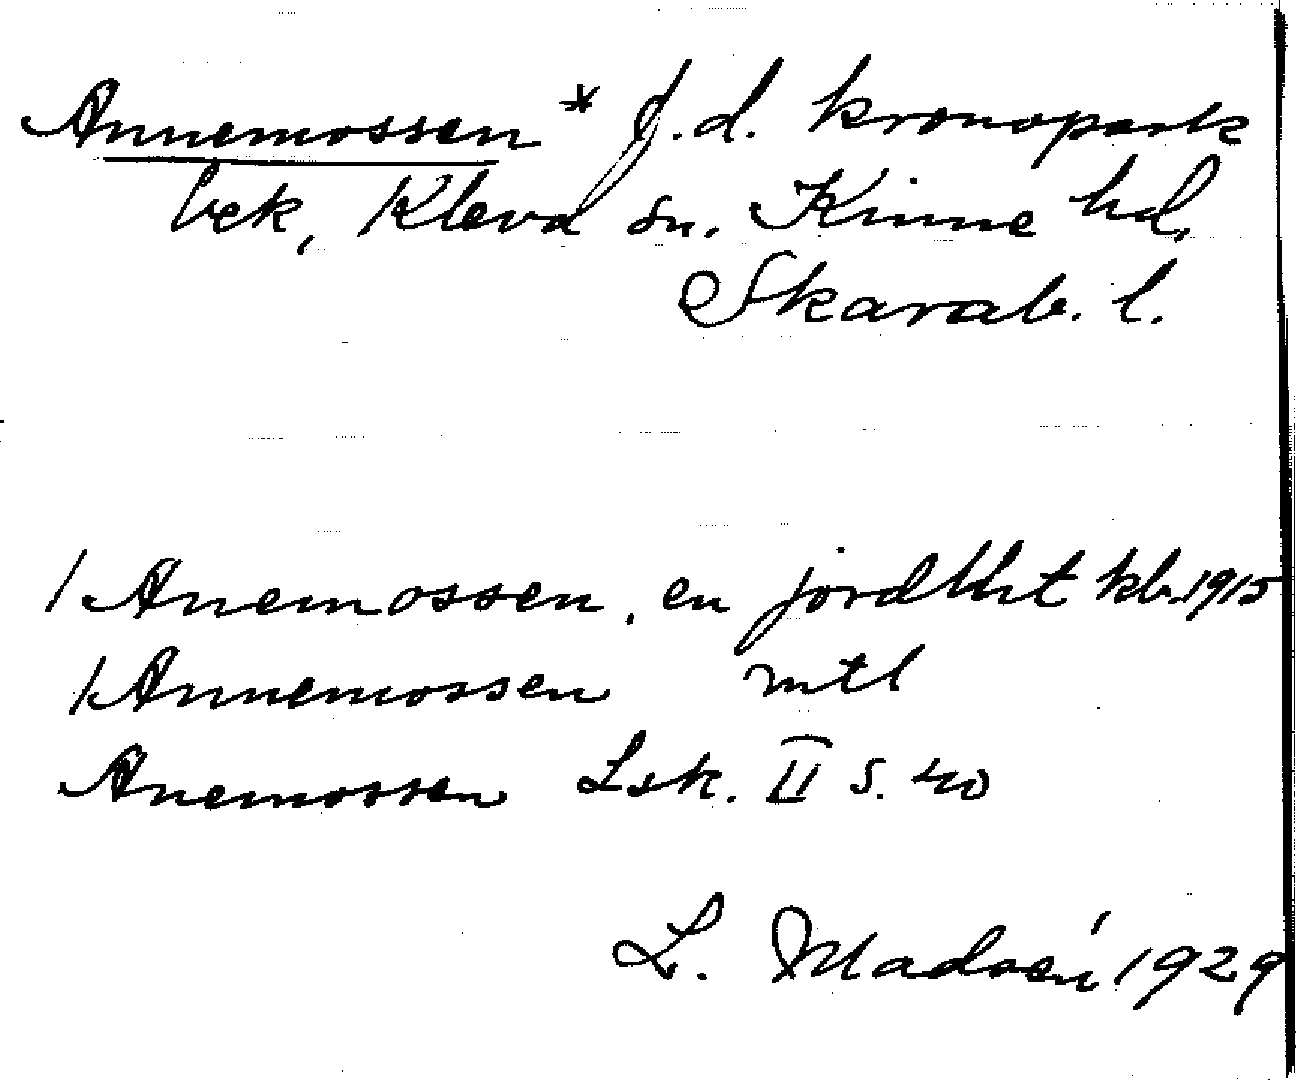 Annemossen * f.d. kronopark
bek, Kleva sn. Kinne hd,
Skarab. l.
1 Anemossen, en jordlht kb. 1915
1 Annemossen mtl
Anemossen Lsk. II s. 40
L. Madsén 1929